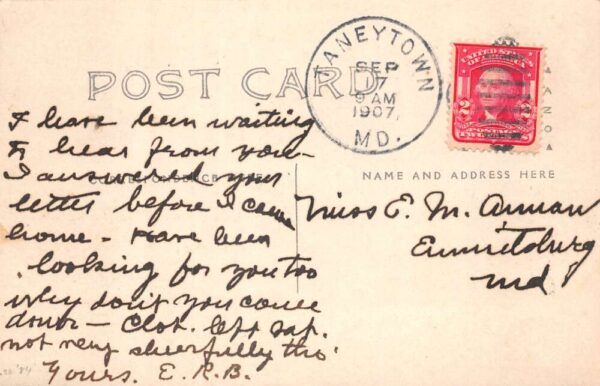 POST CARD
TANEYTOWN
SEP
7
9 AM
1907
MD.
UNITED STATES
2 2
I have been waiting
to hear from you -
I answered your
letter before I came
home - Have been
looking for you too
why don't you come
down - Clot. left Sat.
not very cheerfully tho'
Yours. E. R. B.
NAME AND ADDRESS HERE
Miss E. M. Annan
Emmitsburg
Md